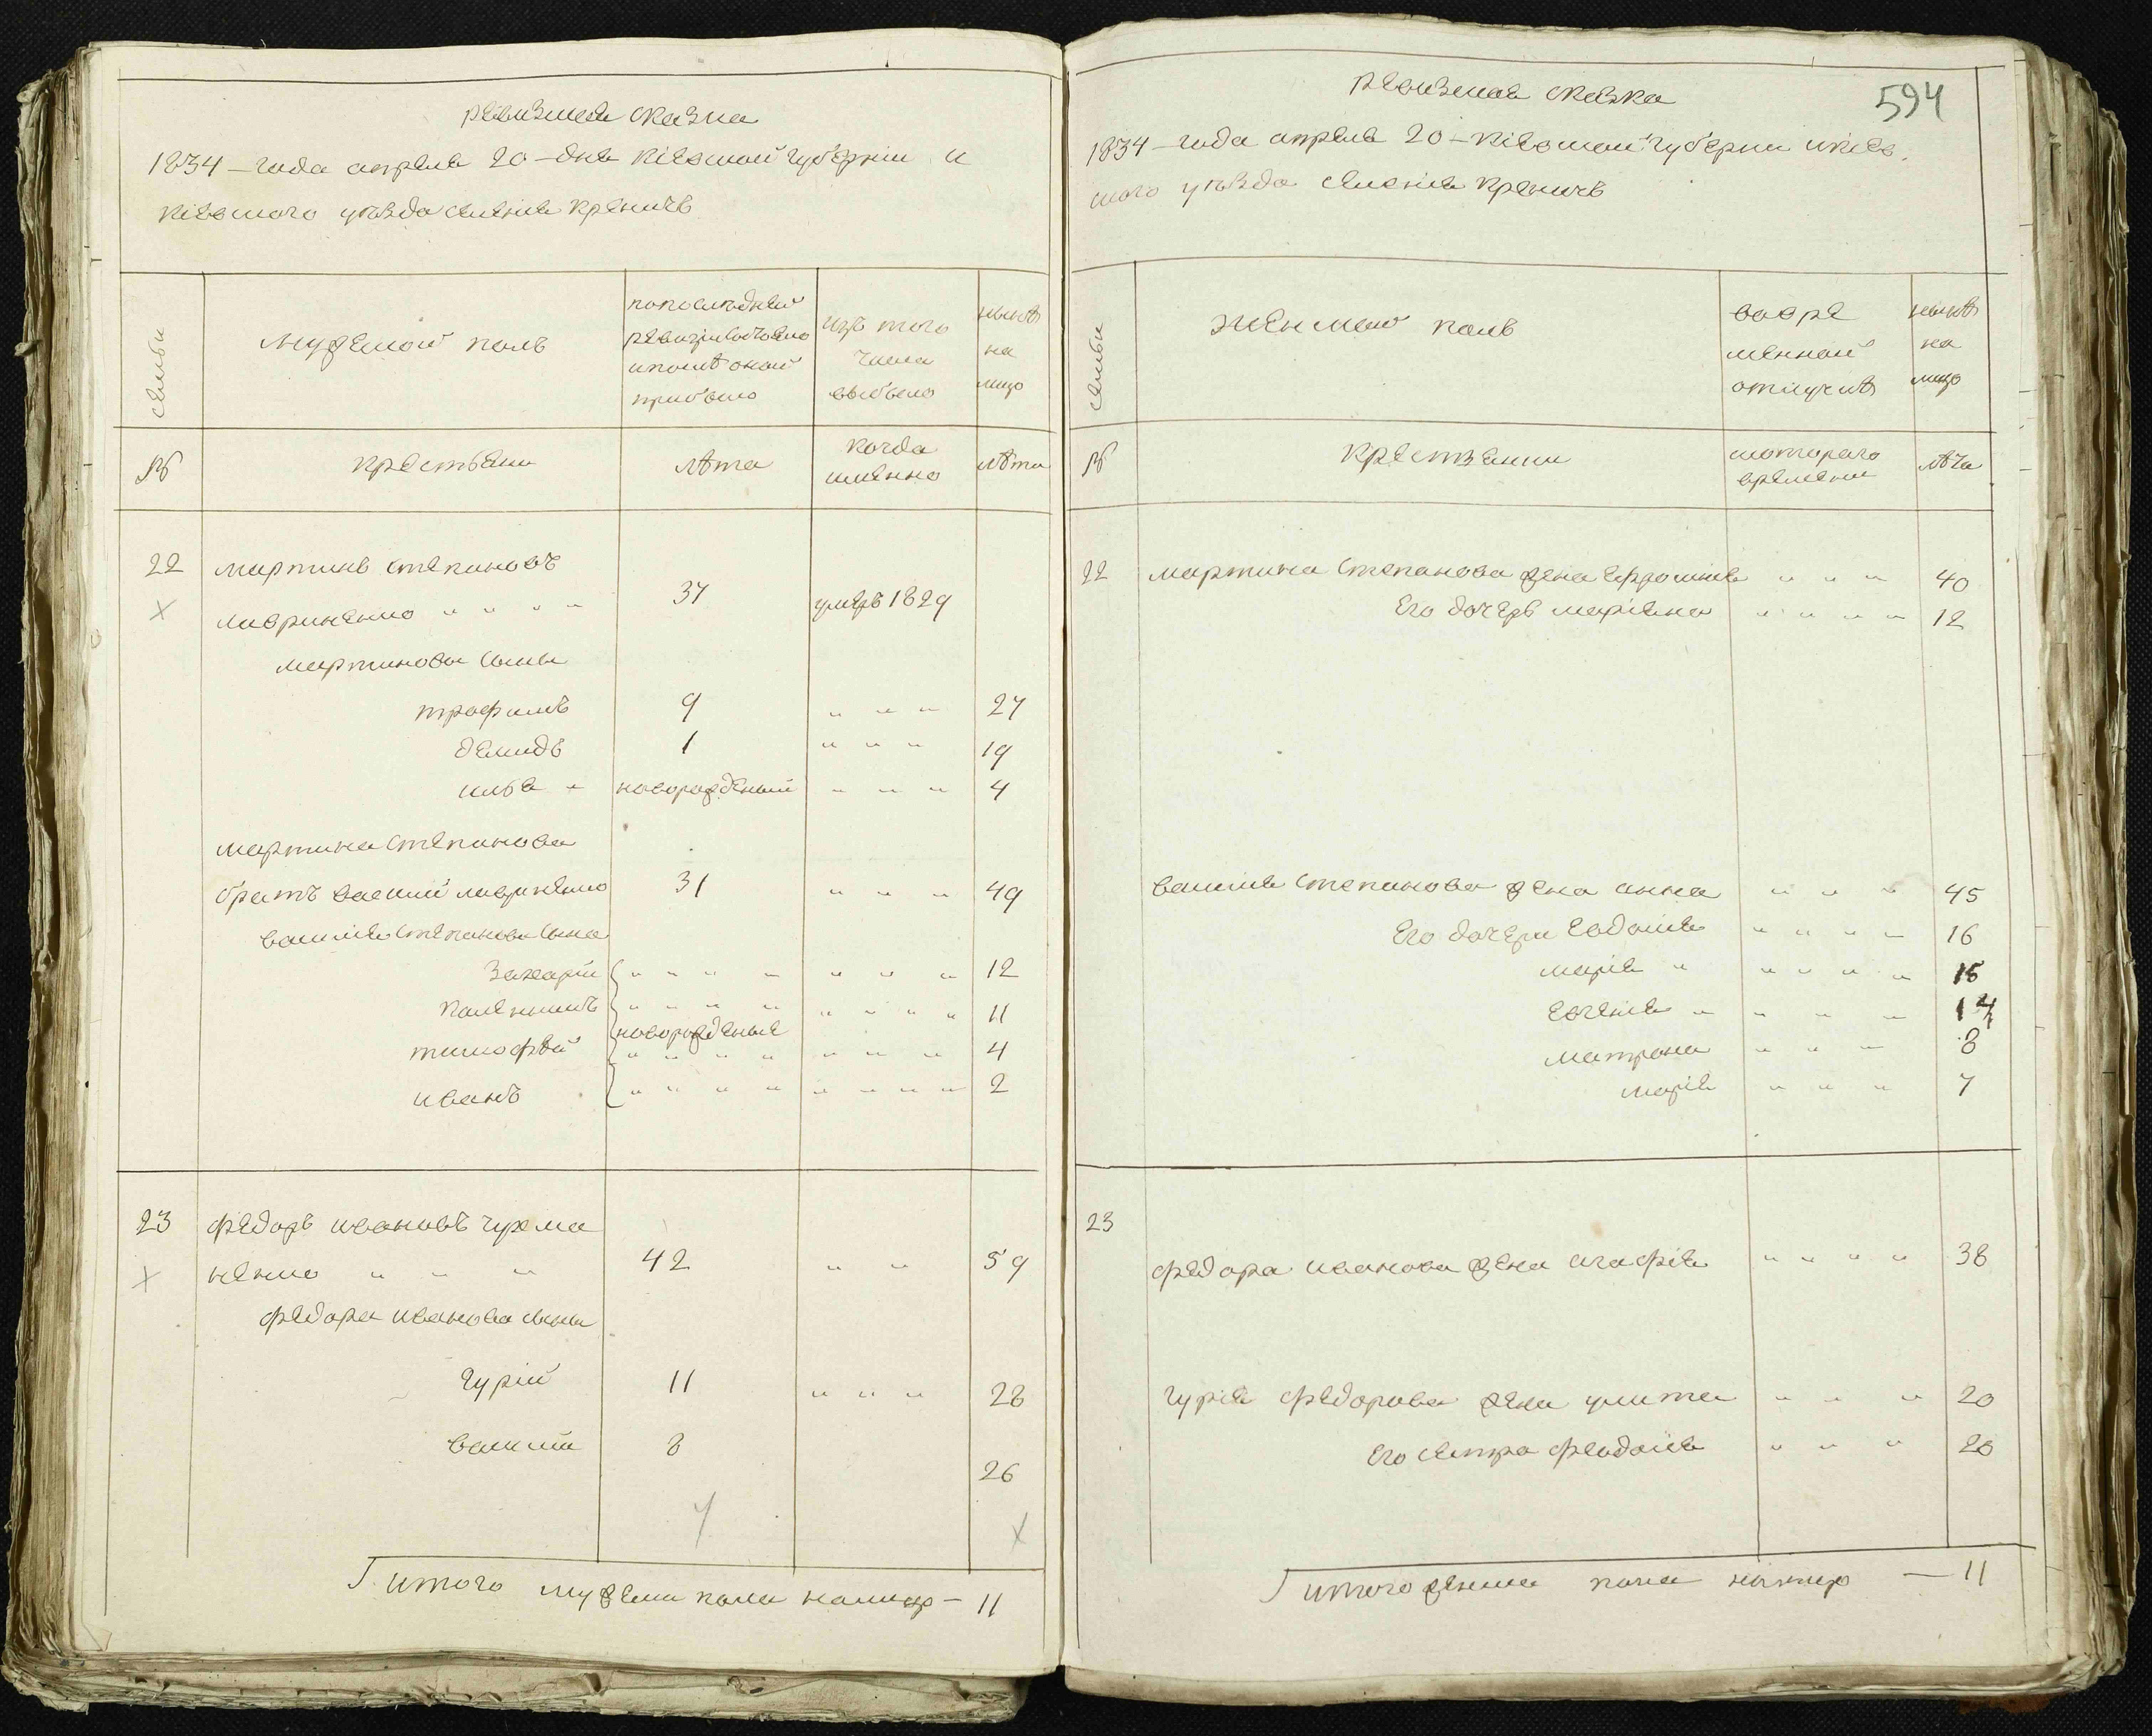 ревизская сказка
1834 – года апреля 20 – дня Кіевской губерніи и
Кіевского уѣзда селенія Креничъ
семьи
мужеской полъ
по последней
ревизіи состояло
и после оной
прибыло
изъ того
числа
выбыло
нынѣ
на
лицо
№
крестьяни
лѣта
когда
именно
лѣта
22 мартинъ степановъ
лавриненко 37 умеръ 1829
мартинова сыны
трофимъ 9 27
демидъ 1 19
илья новорожденый 4
мартина степанова
братъ василий лавриненко 31 49
василия степанова сыны
Захарій 12
11
тимофѣй новорожденые 4
иванъ 2
23 федоръ ивановъ чухма
ненко 42 59
федора иванова сыны
гурій 11 28
василій 8 26
итого мужеска пола налицо – 11
594
ревизская сказка
1834 – года апреля 20 – Кіевской губерни и Кіев
ского уѣзда селенія Креничъ
семьи
женской полъ
во вре
менной
отлучке
нынѣ
на
лицо
№
крестяни
которого
времени
лѣта
22 мартина степанова жена ефросинія 40
его дочеръ маріяна 12
василия степанова жена анна 45
его дочери евдокія 16
марія 15
евгенія 14
матрона 8
марія 7
23
федора иванова жена агафія 38
гурія федорова жена улита 20
его сестра феодосія 20
итого женска пола налицо – 11